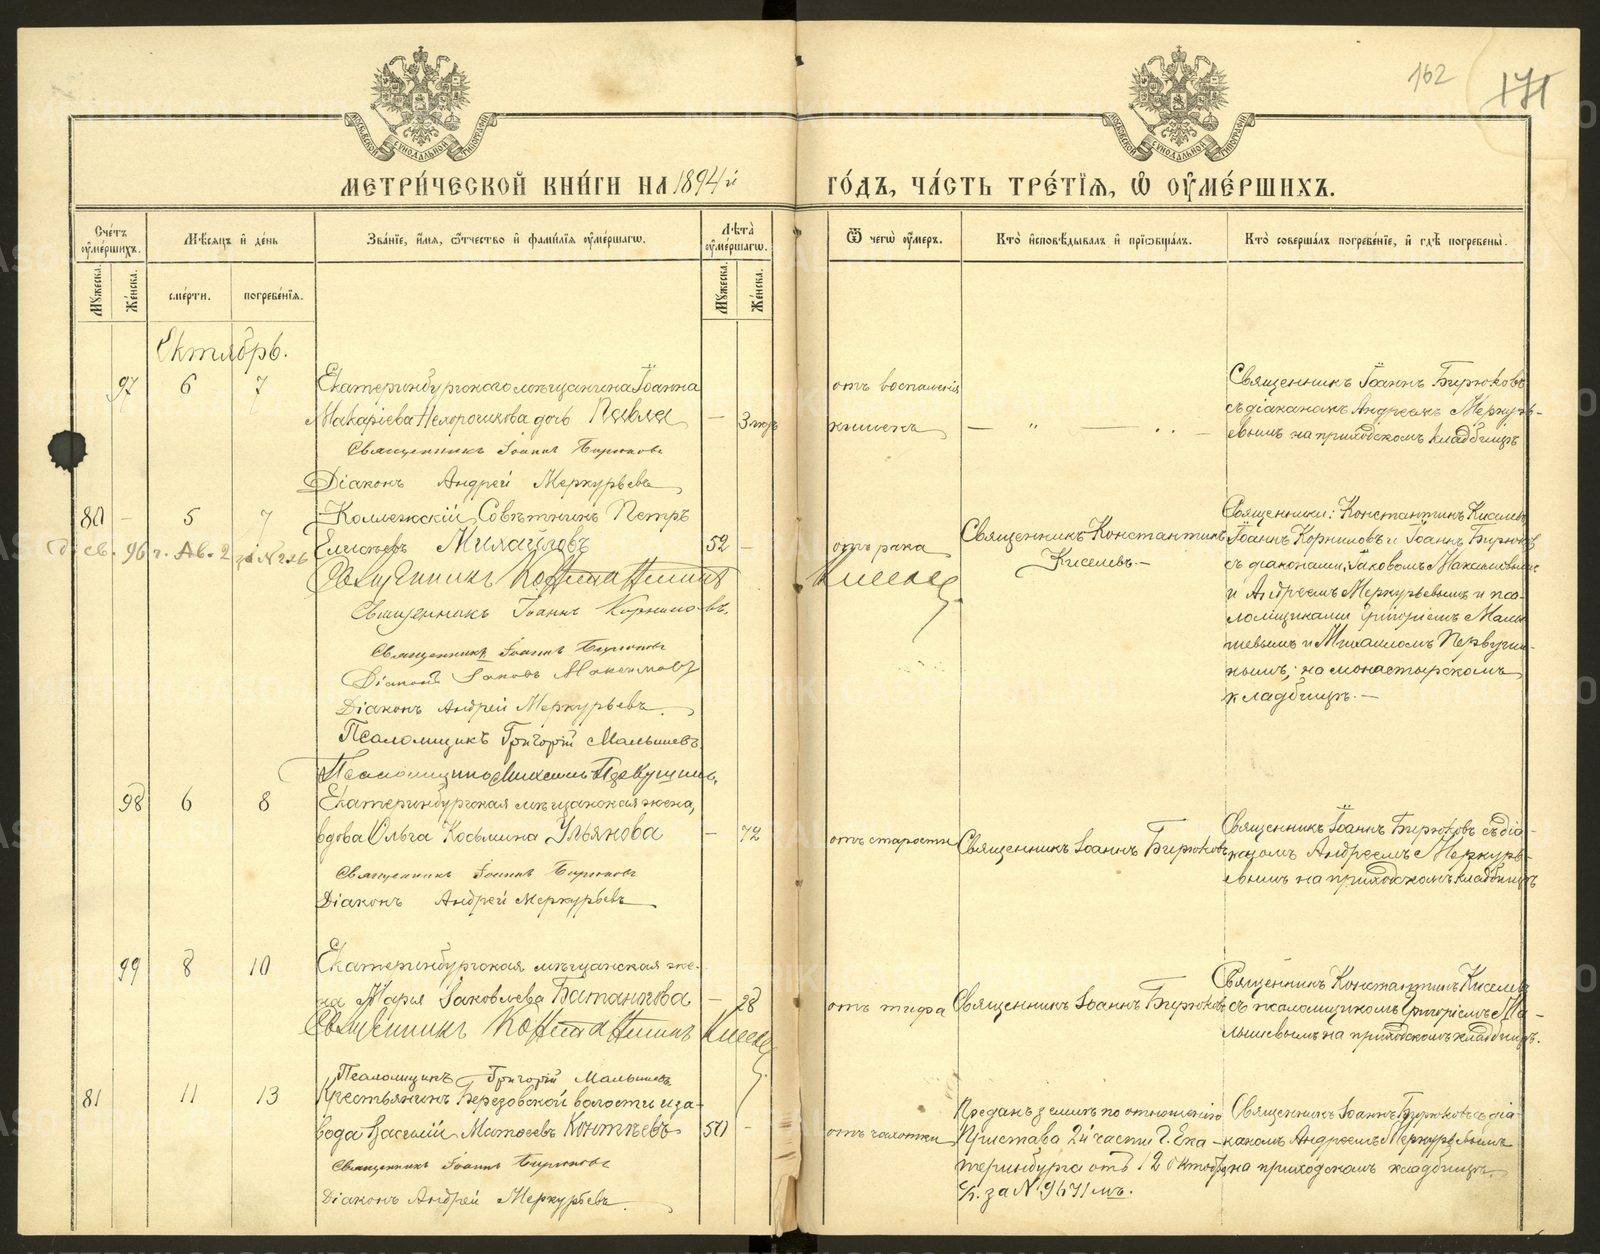 162 171
МОСКОВСКОЙ СѴНОДАЛЬНОЙ ТИПОГРАФІИ
МОСКОВСКОЙ СѴНОДАЛЬНОЙ ТИПОГРАФІИ
МЕТРИ́ЧЕСКОЙ КНИ́ГИ НА 1894й ГО́ДЪ, ЧА́СТЬ ТРЕ́ТІѦ, Ѡ ОУМЕ́РШИХЪ.
Сче́тъ оуме́ршихъ.
Мѣ́сяцъ и де́нь
Зва́ніе, и́мя, ѻ҆́тчество и фами́лія оуме́ршагѡ.
Лѣ́та оуме́ршагѡ.
Ѿ чегѡ̀ оу́меръ.
Кто̀ исповѣ́дывалъ и пріѡбща́лъ.
Кто̀ соверша́лъ погребе́ніе, и гдѣ̀ погребены̀.
Мꙋ́жеска.
Же́нска.
сме́рти.
погребе́нія.
Мꙋ́жеска.
Же́нска.
Октябрь.
97 6 7
Екатеринбургскаго мѣщанина Іоанна
Макаріева Нехорошкова дочь Павла — 3
Священникъ Іоаннъ Бирюковъ
Діаконъ Андрей Меркурьевъ
отъ воспаленія
кишекъ
— " — —
Священникъ Іоаннъ Бирюковъ
съ діакономъ Андреемъ Меркурь-
евымъ на приходскомъ кладбищѣ
80 — 5 7
Коллежскій Совѣтникъ Петръ
96 г. Ав. 2 за №
Елисѣевъ Михайловъ 52 —
Священникъ Константинъ Киселевъ
Священникъ Іоаннъ Корниловъ
Священникъ Іоаннъ Бирюковъ
Діаконъ Іаковъ Максимовъ
Діаконъ Андрей Меркурьевъ
Псаломщикъ Григорій Малышевъ
Псаломщикъ Михаилъ Первушинъ
отъ рака
Священникъ Константинъ
Киселевъ. —
Священники: Константинъ Киселевъ,
Іоаннъ Корниловъ и Іоаннъ Бирюковъ
съ діаконами Іаковомъ Максимовымъ
и Андреемъ Меркурьевымъ и пса-
ломщиками Григоріемъ Малы-
шевымъ и Михаиломъ Первуши-
нымъ; на монастырскомъ
кладбищѣ. —
98 6 8
Екатеринбургская мѣщанская жена,
вдова Ольга Косьмина Ульянова — 72
Священникъ Іоаннъ Бирюковъ
Діаконъ Андрей Меркурьевъ
отъ старости
Священникъ Іоаннъ Бирюковъ
Священникъ Іоаннъ Бирюковъ съ діа-
кономъ Андреемъ Меркурь-
евымъ на приходскомъ кладбищѣ
99 8 10
Екатеринбургская мѣщанская же-
на Марья Іаковлева Батанкова — 28
Священникъ Константинъ Киселевъ
Псаломщикъ Григорій Малышевъ
отъ тифа
Священникъ Іоаннъ Бирюковъ
Священникъ Константинъ Киселевъ
съ псаломщикомъ Григоріемъ Ма-
лышевымъ на приходскомъ кладбищѣ.
81 11 13
Крестьянинъ Березовской волости и за-
вода Василій Матѳеевъ Контѣевъ 50 —
Священникъ Іоаннъ Бирюковъ
Діаконъ Андрей Меркурьевъ.
отъ чахотки
Преданъ землѣ по отношенію
Пристава 2й части г. Ека-
теринбурга отъ 12 октября
с/г. за № 9671мъ.
Священникъ Іоаннъ Бирюковъ съ діа-
кономъ Андреемъ Меркурьевымъ
на приходскомъ кладбищѣ.